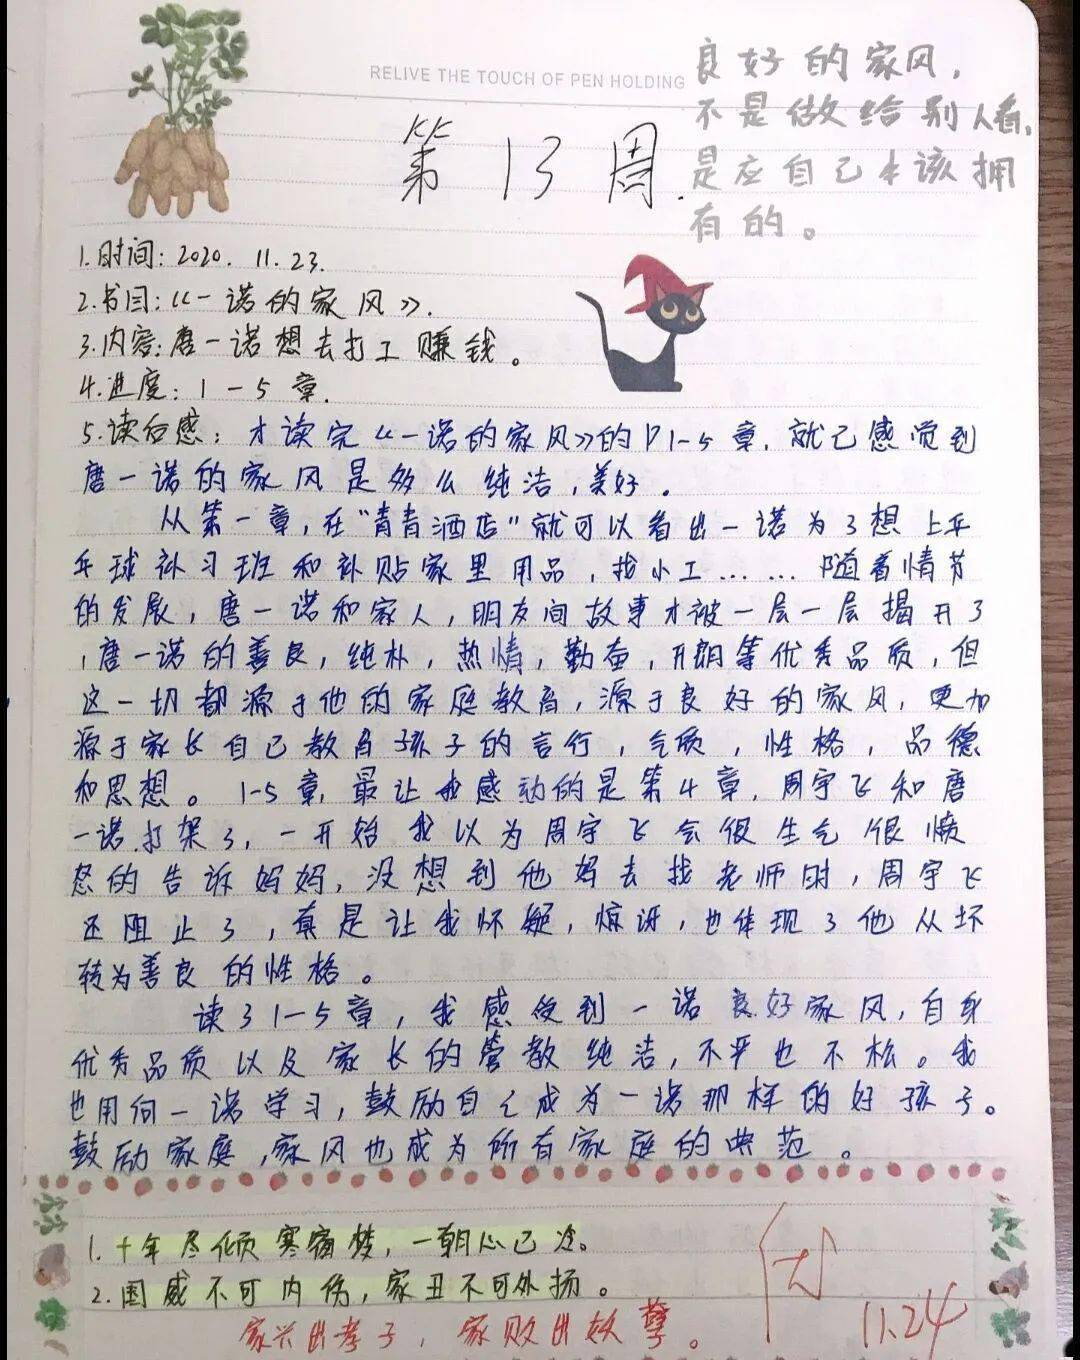 RELIVE THE TOUCH OF PEN HOLDING
良好的家风，
不是做给别人看，
是应自己本该拥
有的。
第13周.
1.时间：2020.11.23.
2.书目：《一诺的家风》.
3.内容：唐一诺想去打工赚钱。
4.进度：1-5章.
5.读后感：才读完《一诺的家风》的P1-5章，就已感觉到
唐一诺的家风是多么纯洁，美好。
从第一章，在“青青酒店”就可以看出一诺为了想上乒
乓球补习班和补贴家里用品，找小工……随着情节
的发展，唐一诺和家人，朋友间故事才被一层一层揭开了
，唐一诺的善良，纯朴，热情，勤奋，开朗等优秀品质，但
这一切都源于他的家庭教育，源于良好的家风，更加
源于家长自己教育孩子的言行，气质，性格，品德
和思想。1-5章，最让我感动的是第4章，周宇飞和唐
一诺打架了，一开始我以为周宇飞会很生气很愤
怒的告诉妈妈，没想到他妈去找老师时，周宇飞
还阻止了，真是让我怀疑，惊讶，也体现了他从坏
转为善良的性格。
读了1-5章，我感受到一诺良好家风，自身
优秀品质以及家长的管教纯洁，不严也不松。我
也用向一诺学习，鼓励自己成为一诺那样的好孩子。
鼓励家庭，家风也成为所有家庭的典范。
1.十年尽倾寒窗梦，一朝心已冷。
2.国威不可内伤，家丑不可外扬。
家兴出孝子，家败出妖孽。
11.24